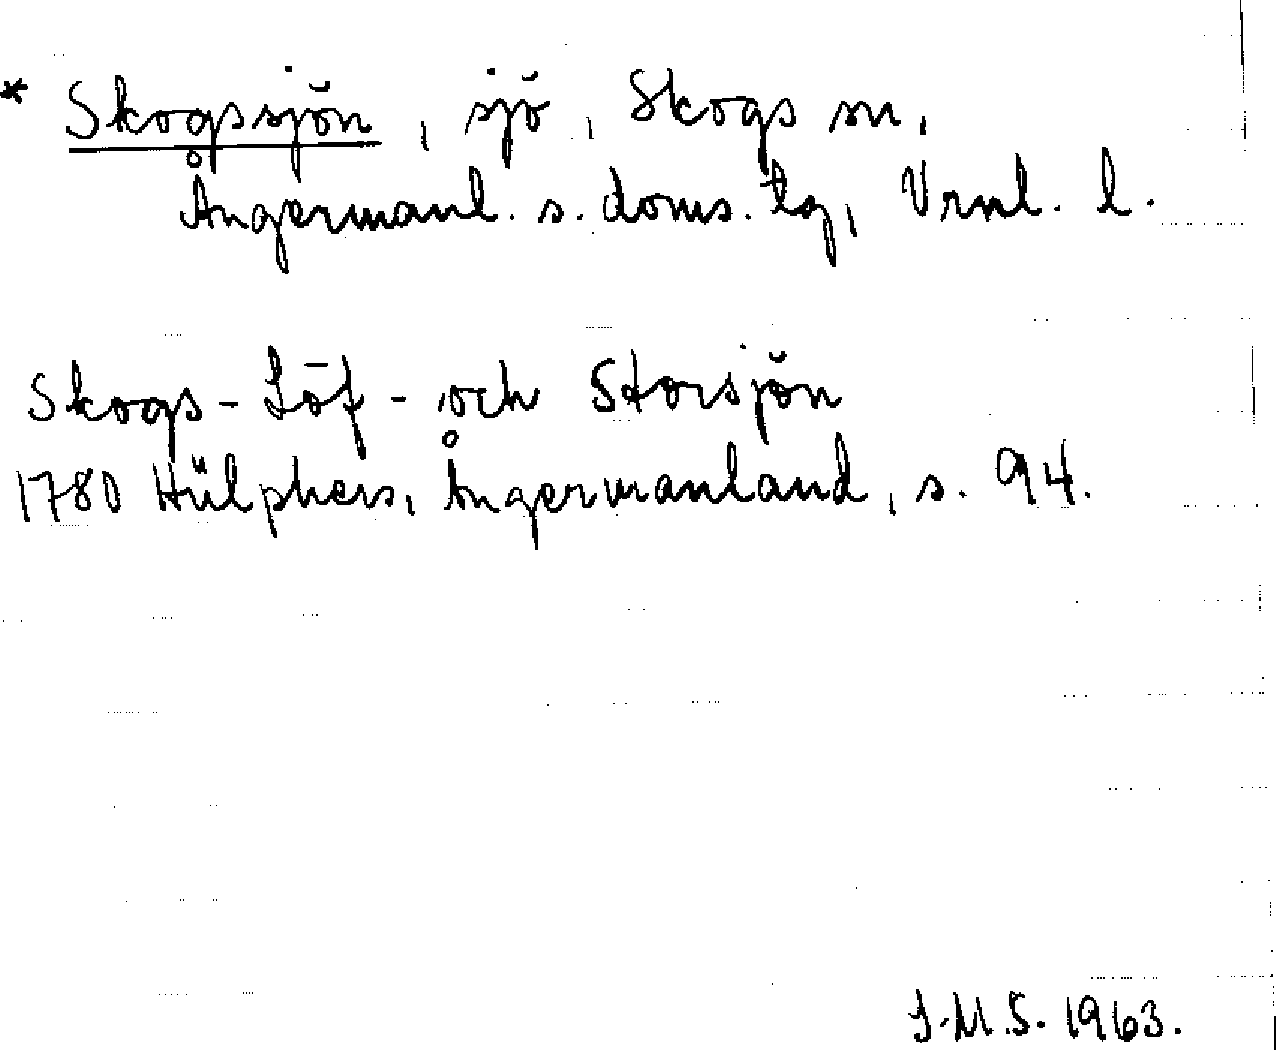 * Skogssjön, sjö, Skogs sn,
Ångermanl. s. doms. tg, Vrnl. l.
Skogs- Löf- och Storsjön
1780 Hülphers, Ångermanland, s. 94.
I.M.S. 1963.